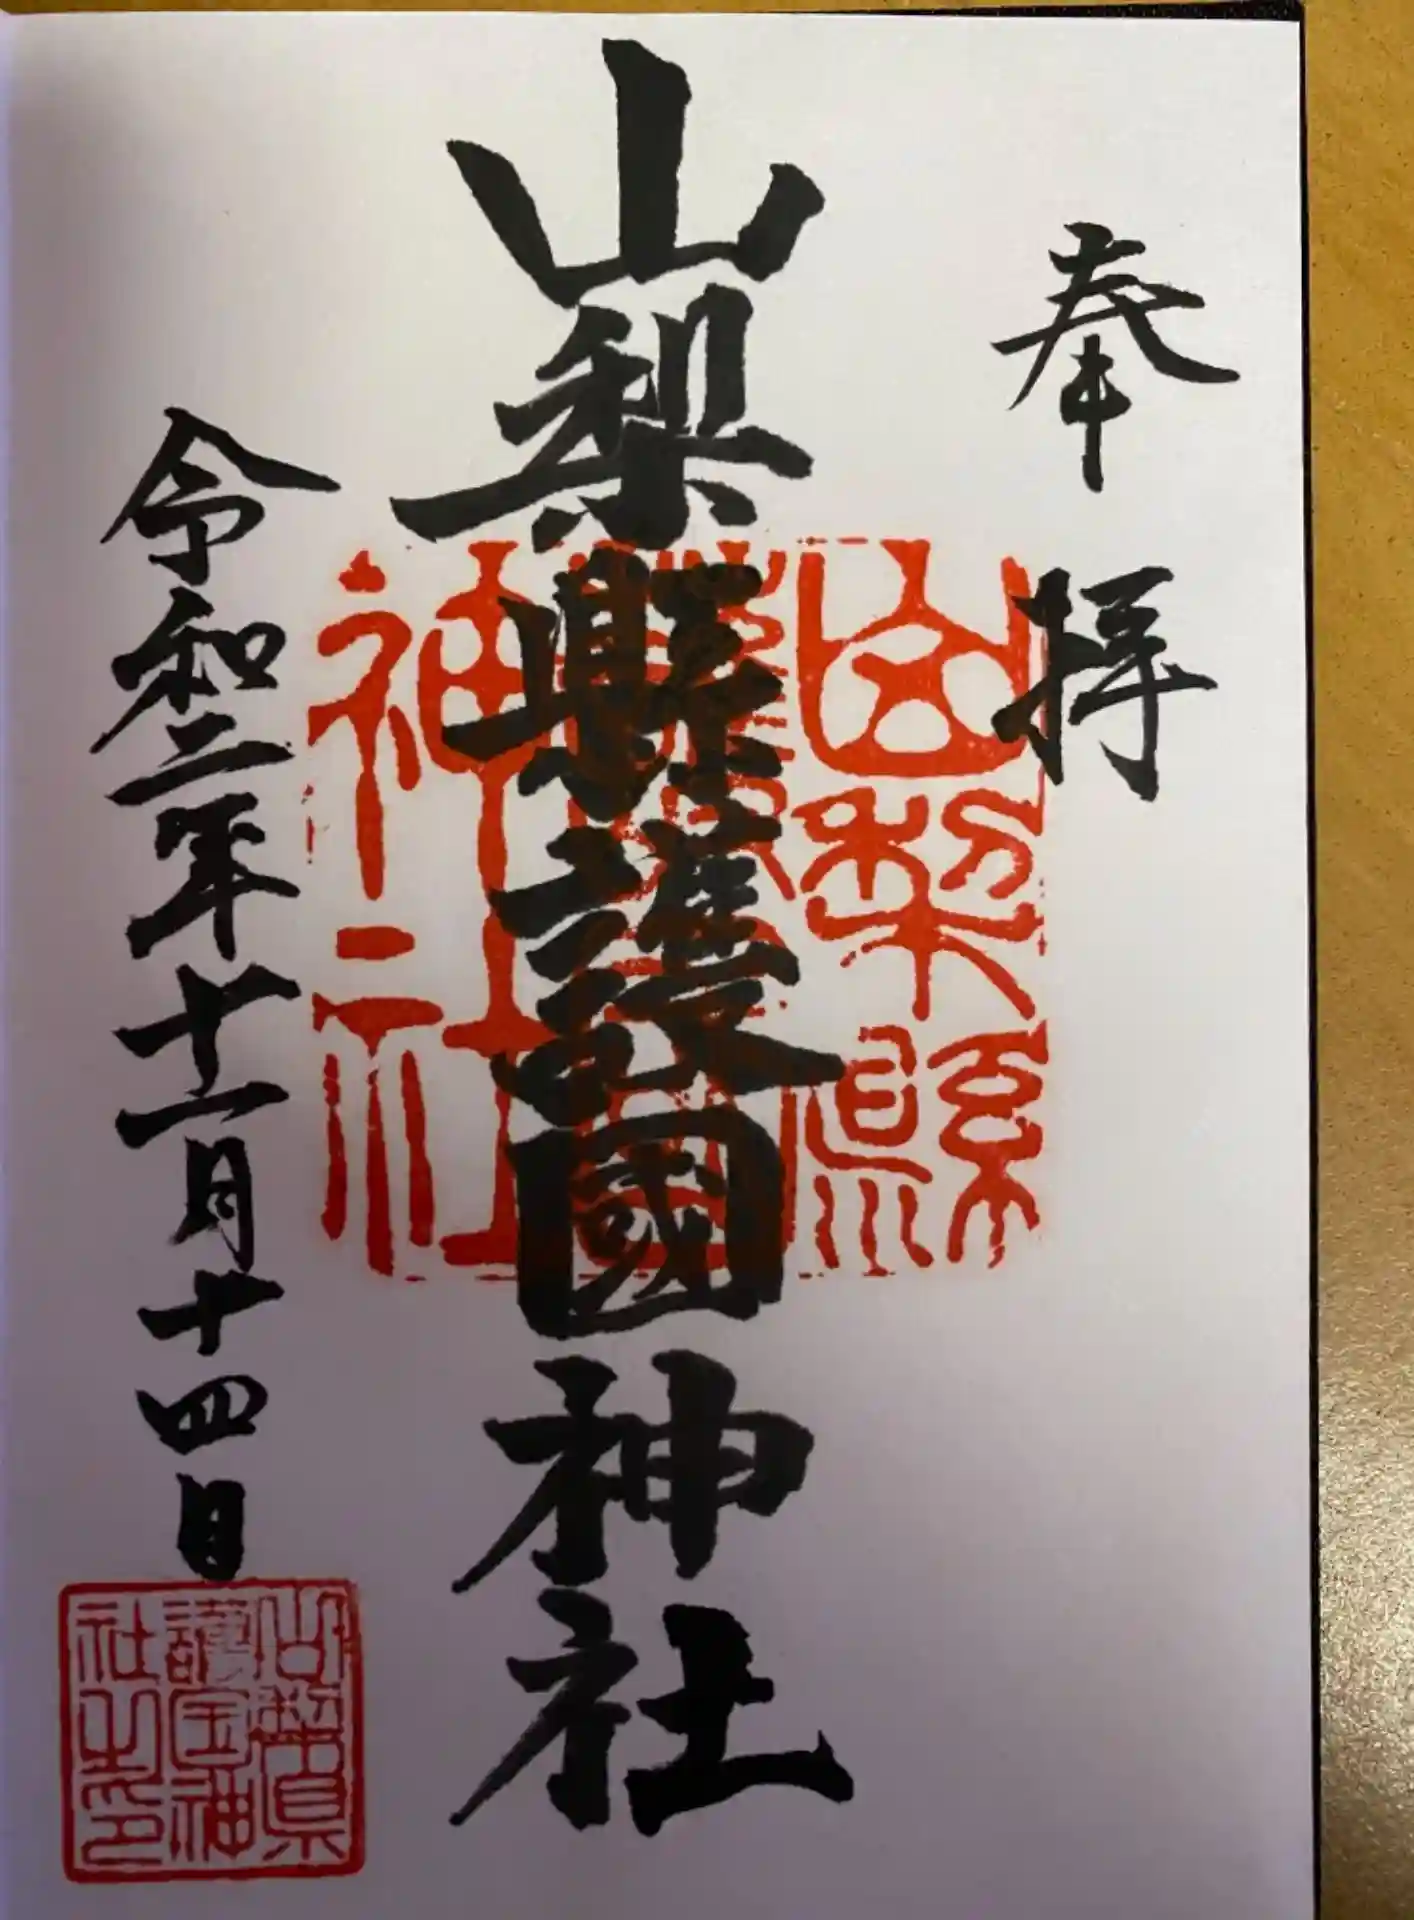 奉拝
山梨縣護國神社
令和二年十一月十四日
山梨縣
護國
神社
山梨県
護国神
社之印